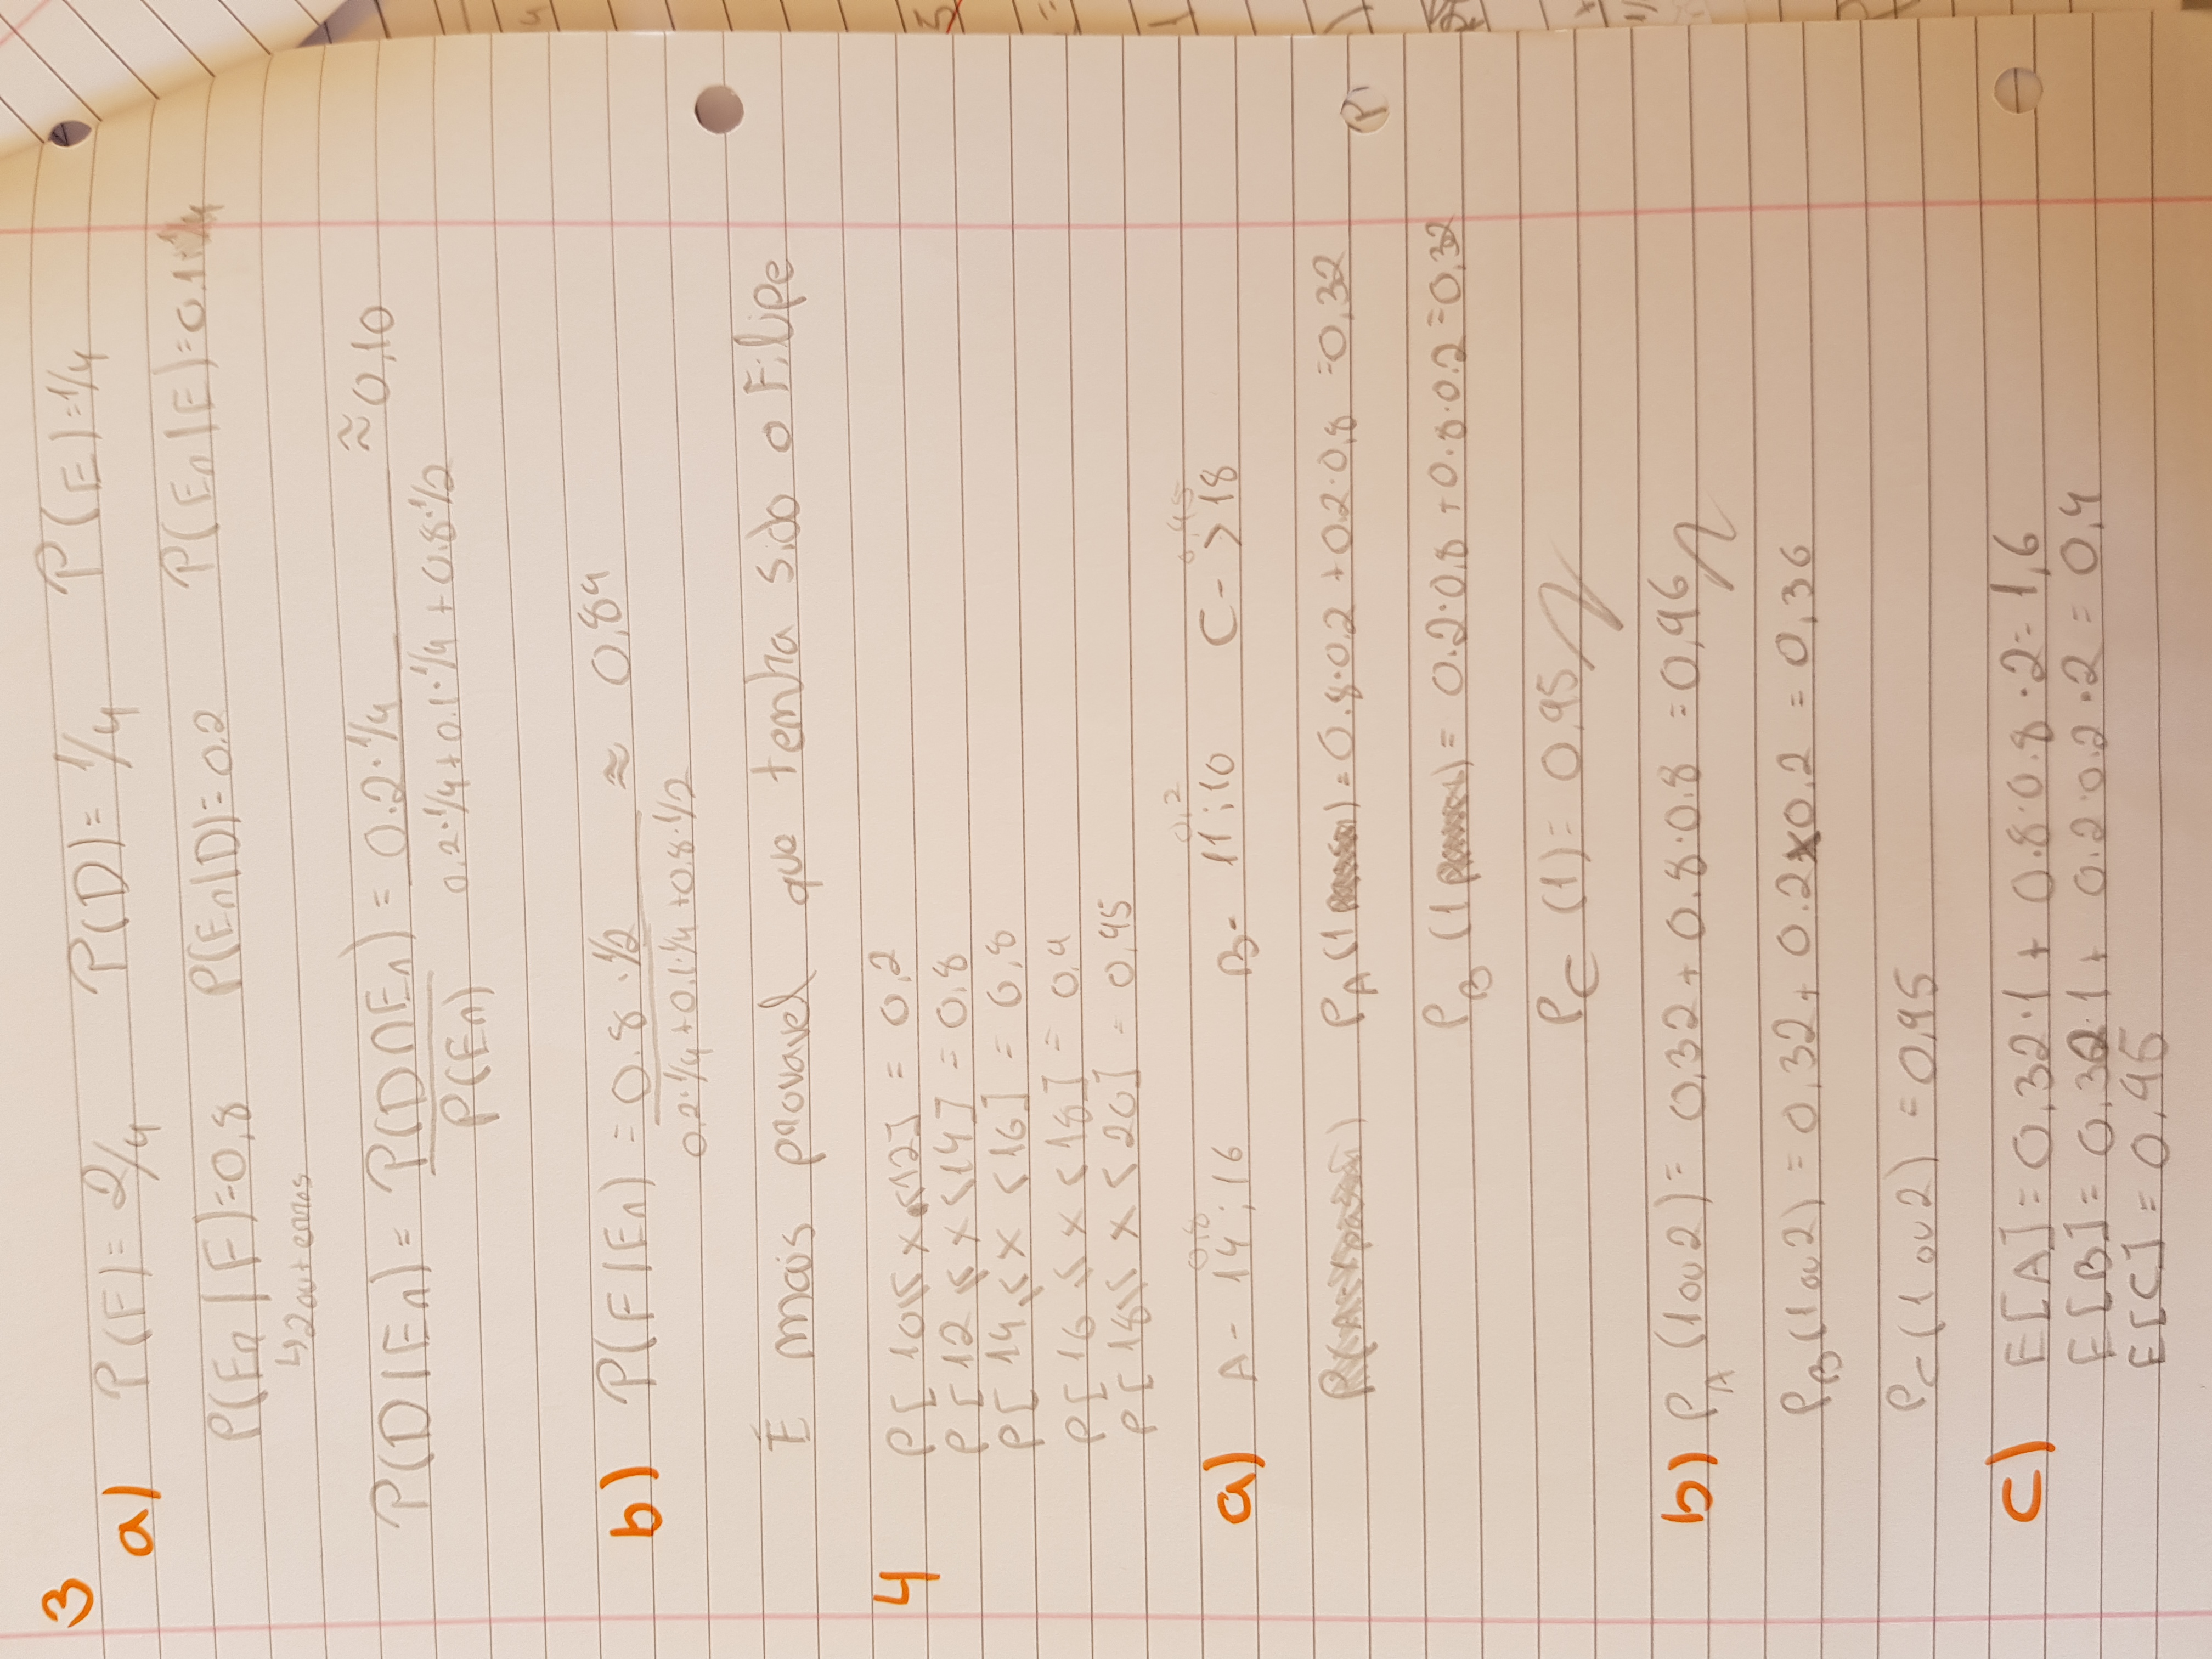 3
a) P(F)=2/4 P(D)=1/4 P(E)=1/4
P(En|F)=0,8 P(En|D)=0.2 P(En|E)=0.1
↳2out erros
P(D|En)= P(D∩En) = 0.2·1/4 ≈0,10
P(En) 0.2·1/4+0.1·1/4+0.8·1/2
b) P(F|En) = 0.8·1/2 ≈ 0,84
0.2·1/4+0.1·1/4+0.8·1/2
É mais provavel que tenha sido o Filipe
4 P[10≤x<12] = 0,2
P[12≤x<14] = 0,8
P[14≤x<16] = 0,8
P[16≤x<18] = 0,9
P[18≤x≤20] = 0,95
0,8 0,2 0,95
a) A- 14;16 B- 11;10 C- >18
PA(1) = 0.8·0.2+0.2·0,8 =0,32
PB(1) = 0.2·0,8+0.8·0.2=0,32
PC(1)= 0,95
b) PA(1ou2)= 0,32+0.8·0.8 =0,96
PB(1ou2) = 0,32+0.2x0.2 = 0,36
PC(1ou2) =0,95
c) E[A]=0,32·1+0.8·0.8·2=1,6
E[B]=0,32·1+0.2·0.2·2=0,4
E[C]=0,95